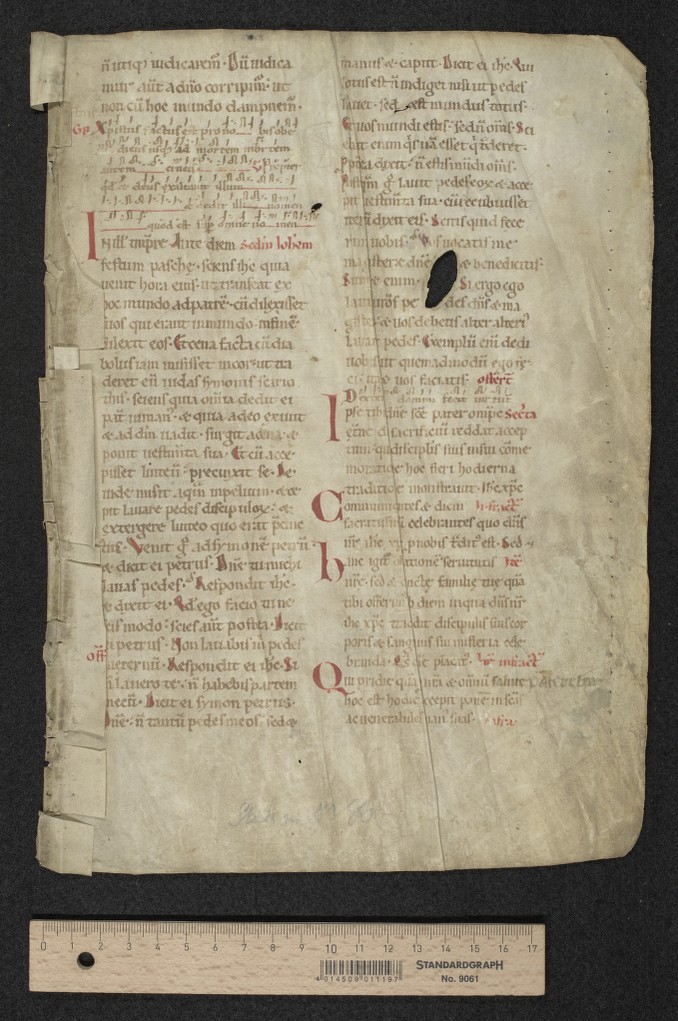 n̄ utiq; iudicarem̄· Dū iudica
mur aūt a dn̄o corripim᷒· ut
non cū hoc mundo dampnem᷒·
GR. Xpistus factus est pro no bis obe
diens usq; ad mortem mortem
autem crucis V Propter
qd̄ & deus exaltauit illum
& dedit illi nomen
quod est sup omne no men
In ill' tēpr̄e· Ante diem Sedm̄ Ioh̄em
festum pasche· sciens ih̄c quia
uenit hora eius· ut transeat ex
hoc mundo ad patrē· cū dilexisset
suos qui erant in mundo· in finē
dilexit eos· Et cena facta cū dia
bolus iam misisset in cor ut tra
deret eū iudas symonis scario
this· sciens quia om̄ia dedit ei
pat̄ in man᷒· & quia a deo exiuit
& ad dm̄ uadit· surgit a cena &
ponit uestim̄ta sua· Et cū acce
pisset linteū precinxit se· De
inde misit aquā in peluim· & ce
pit lauare pedes discipuloꝝ· &
extergere linteo quo erat p̄cinc
tus· Venit g° ad symonē petrū·
& dicit ei petrus· Dn̄e tu michi
lauas pedes· Respondit ih̄c·
& dixit ei· Qd̄ ego facio tu ne
scis modo· scies aūt postea· Dicit
ei petrus· Non lauabis m̄ pedes
off in eternū· Respondit ei ih̄c· Si
n̄ lauero te· n̄ habebis partem
mecū· Dicit ei symon petrus·
Dn̄e· n̄ tantū pedes meos· sed &
manus & caput· Dicit ei ih̄c· Qui
lotus est n̄ indiget nisi ut pedes
lauet· sed est mundus totus·
Et uos mundi estis· sed n̄ om̄s· Sci
ebat enim qs̄nā esset q̇ t̄deret·
Ppt̄ea dixit· n̄ estis mūdi om̄s·
Postqm̄ g° lauit pedes eoꝝ & acce
pit uestim̄ta sua· cū recubuisset
iterū dixit eis· Scitis quid fece
rim uobis· Vos uocatis me
magister & dn̄e & benedicitis·
Sum & enim· Si ergo ego
laui ur̄os pedes dn̄s & ma
gister & uos debetis alter alteri᷒
lauare pedes· Exemplū enim dedi
uobis ut quemadmodū ego fe
ci ita & uos faciatis· offert̄
Dextera domini fecit uirtutē
Ipse tibi dn̄e sc̄e pater om̄ps Secr̄ta
et̄ne d̄s sacrificiū reddat accep
tum· qui discipulis suis in sui cōme
moratione hoc fieri hodierna
traditione monstrauit· Ih̄c xp̄c
Communicantes & diem Infract̄
sacratissimū celebrantes quo dn̄s
nr̄ ih̄c xp̄c p nobis t̄dit᷒ est· Sed
hanc igit̄ oblationē seruitutis
nr̄e· sed & cuncte familie tue quā
tibi offerim᷒ ob diem in qua dn̄s nr̄
ih̄c xp̄c tradidit discipulis suis cor
poris & sanguinis sui misteria cele
branda· Infract̄
Qui pridie quā nr̄a & omniū salute pateretur
hoc est hodie accepit panē in sc̄as
ac uenerabiles manus suas·
0 1 2 3 4 5 6 7 8 9 10 11 12 13 14 15 16 17
4 014509 011197
STANDARDGRAPH
No. 9061